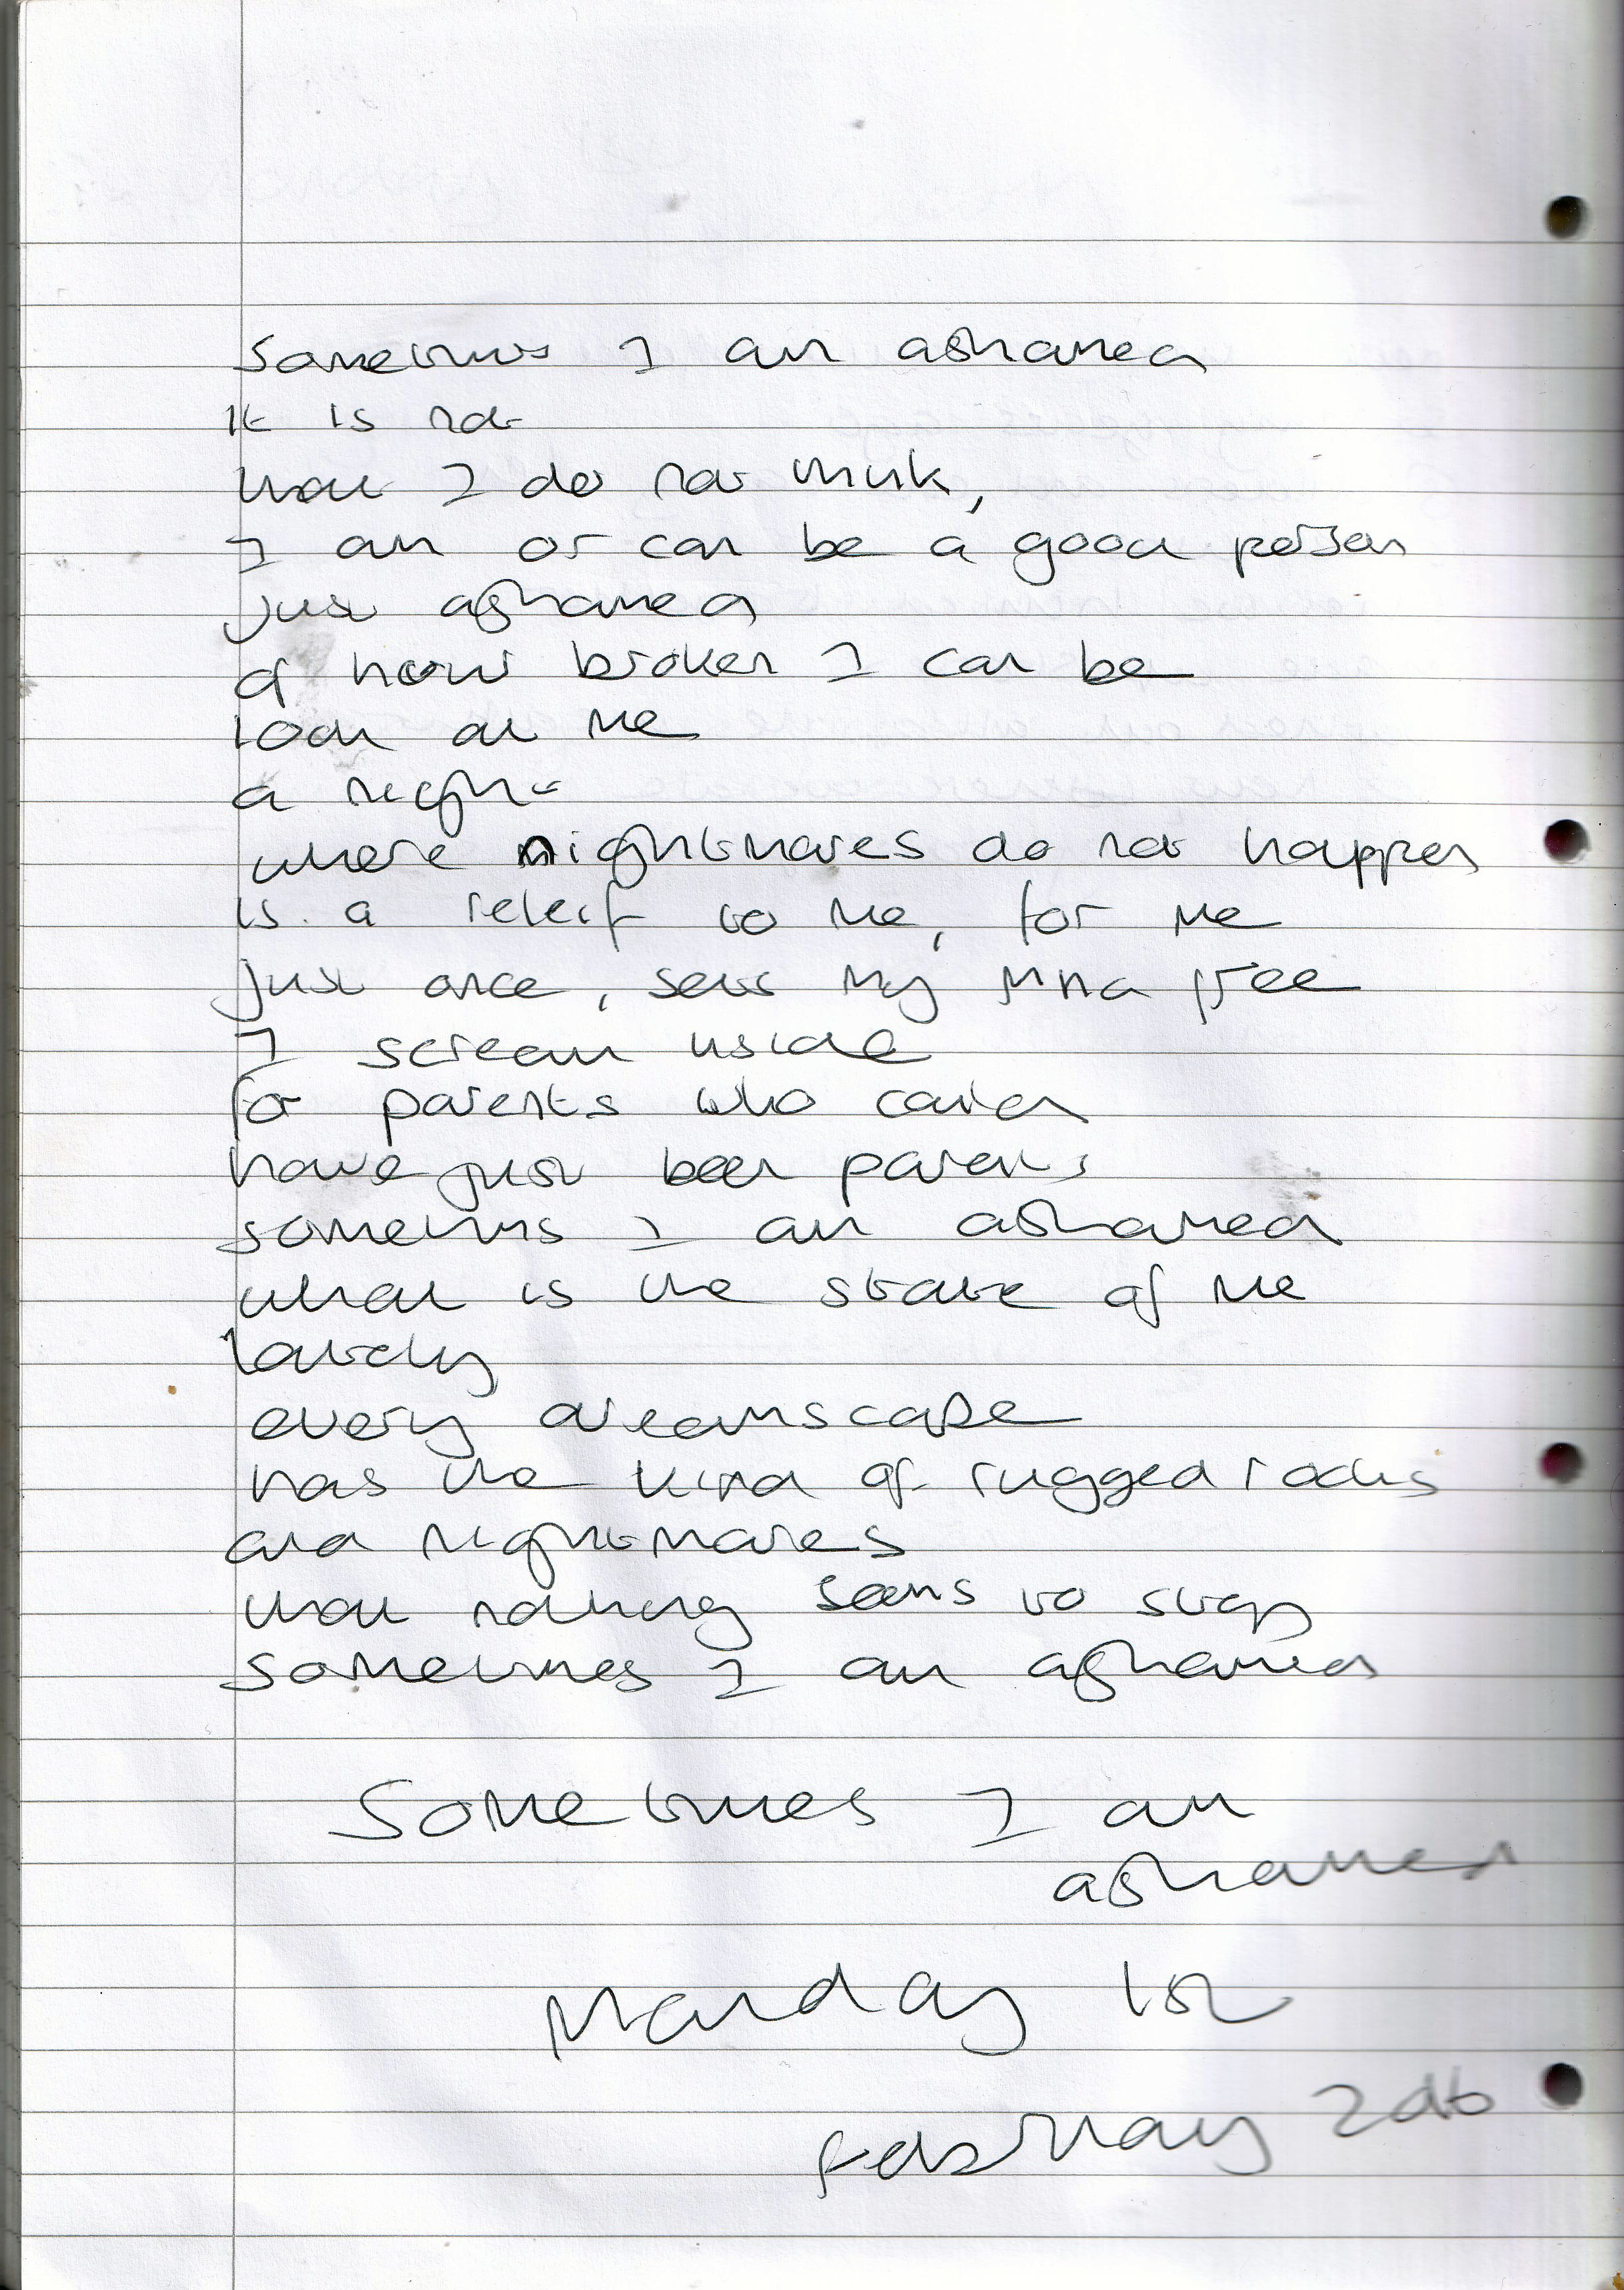 Sometimes I am ashamed
It is not
that I do not think,
I am or can be a good person
just ashamed
of how broken I can be
look at me
a night
where nightmares do not happen
is a releif to me, for me
just once, sets my mind free
I scream inside
for parents who could
have just been parents
sometims I am ashamed
what is the state of me
lately
every dreamscape
has the kind of rugged rocks
and nightmares
that nothing seems to stop
sometimes I am ashamed
Sometimes I am
ashamed
Monday 1st
February 2016